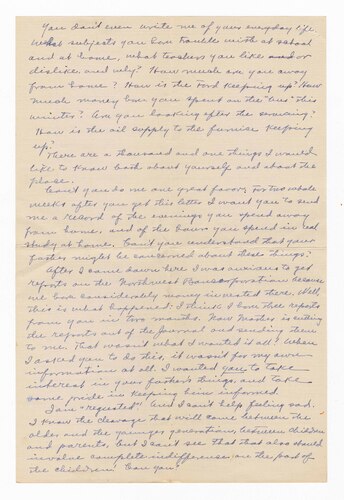 You don't even write me of your everyday life.
What subjects you have trouble with at school
and at home, what teachers you like and or
dislike and why? How much are you away
from home? How is the Ford keeping up? How
much money have you spent on the "bus" this
winter? Are you looking after the
How is the oil supply to the furnace keeping
up?
There are a thousand and one things I would
like to know both about yourself and about the
place.
Can't you do me one great favor, for two whole
weeks after you get this letter I want you to send
me a record of the evenings you spend away
from home, and of the hours you spend in real
study at home. Can't you understand that your
father might be concerned about these things?
After I came down here I was anxious to get
reports on the Northwest Bancorporation because
we have considerable money invested there. Well
this is what happened. I think I have three reports
from you in two months. Now Mother is cutting
the reports out of the Journal and sending them
to me. That wasn't what I wanted at all! When
I asked you to do this, it wasn't for my own
information at all. I wanted you to take
interest in your father's things, and take
some pride in keeping him informed.
I am "requested" but I can't help feeling sad.
I know the cleavage that will come between the
older and the younger generation, between children
and parents, but I can't see that that also should
involve complete indifference on the part of
the children! Can you?